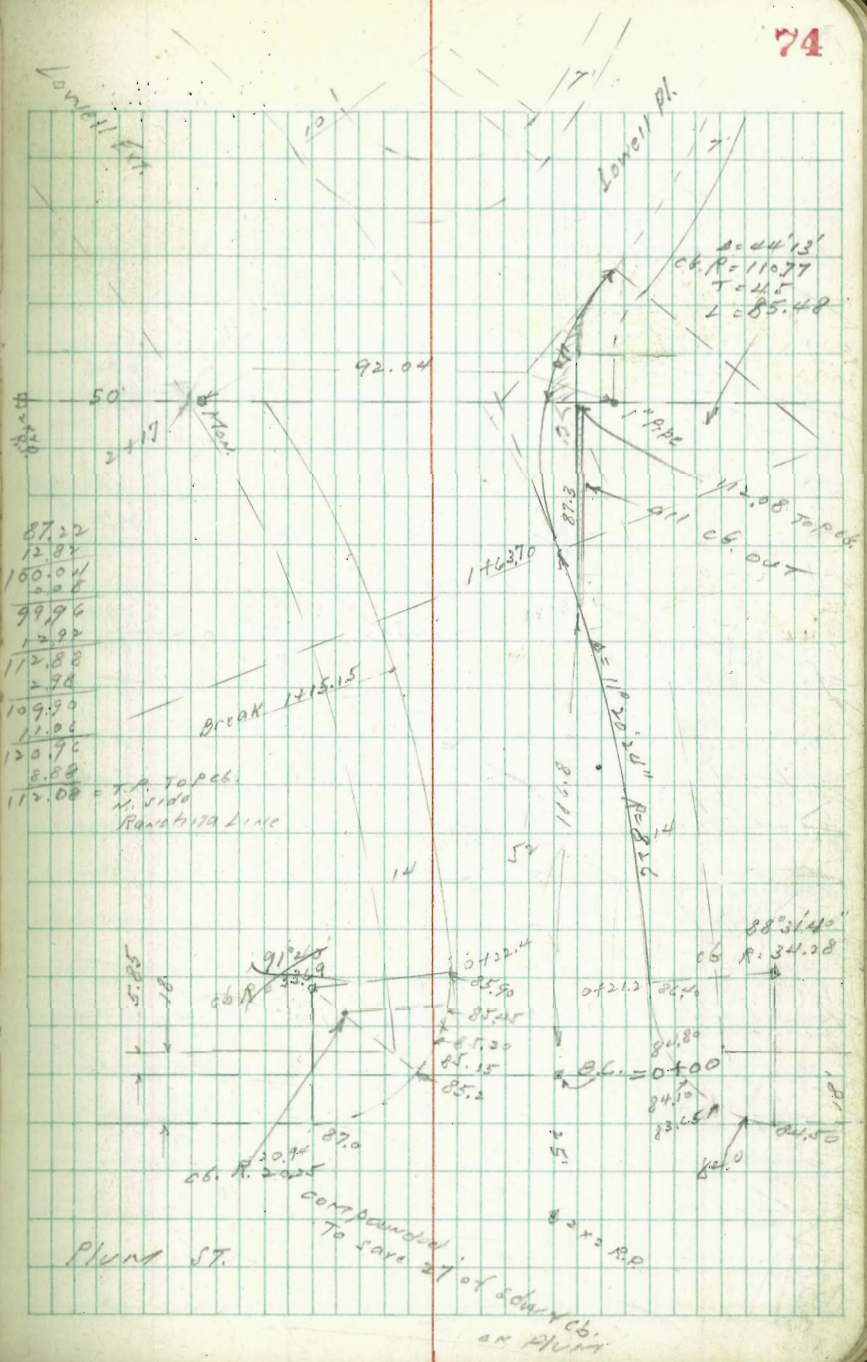 74
Lowell Ext.
10'
17'
Lowell Pl.
7'
Δ = 44°13'
cb. R = 110.77
T = 45
L = 85.48
92.04
50'
Mon.
2+17
1" Pipe
112.08 Top cb.
all cb. out
87.3
1+63.70
87.22
12.82
100.04
0.08
99.96
12.92
112.88
2.98
109.90
11.06
120.96
8.88
112.08 = T.P. Top cb.
N. side
Ranchita Line
Break 1+15.15
Δ = 11°20'24" R = 826
116.8
52
14
14
88°31'40"
cb R = 34.28
91°45'
cb R = 33.69
5.85
18
0+22.4
85.90
85.45
85.20
85.15
85.2
0+21.2
86.40
84.80
B.C. = 0+00
84.10
83.65
84.50
18'
87.0
52
20.94
cb. R. 20.25
compounded
To save 27' of
cb.
on Plum
2x2 R.P.
Plum St.